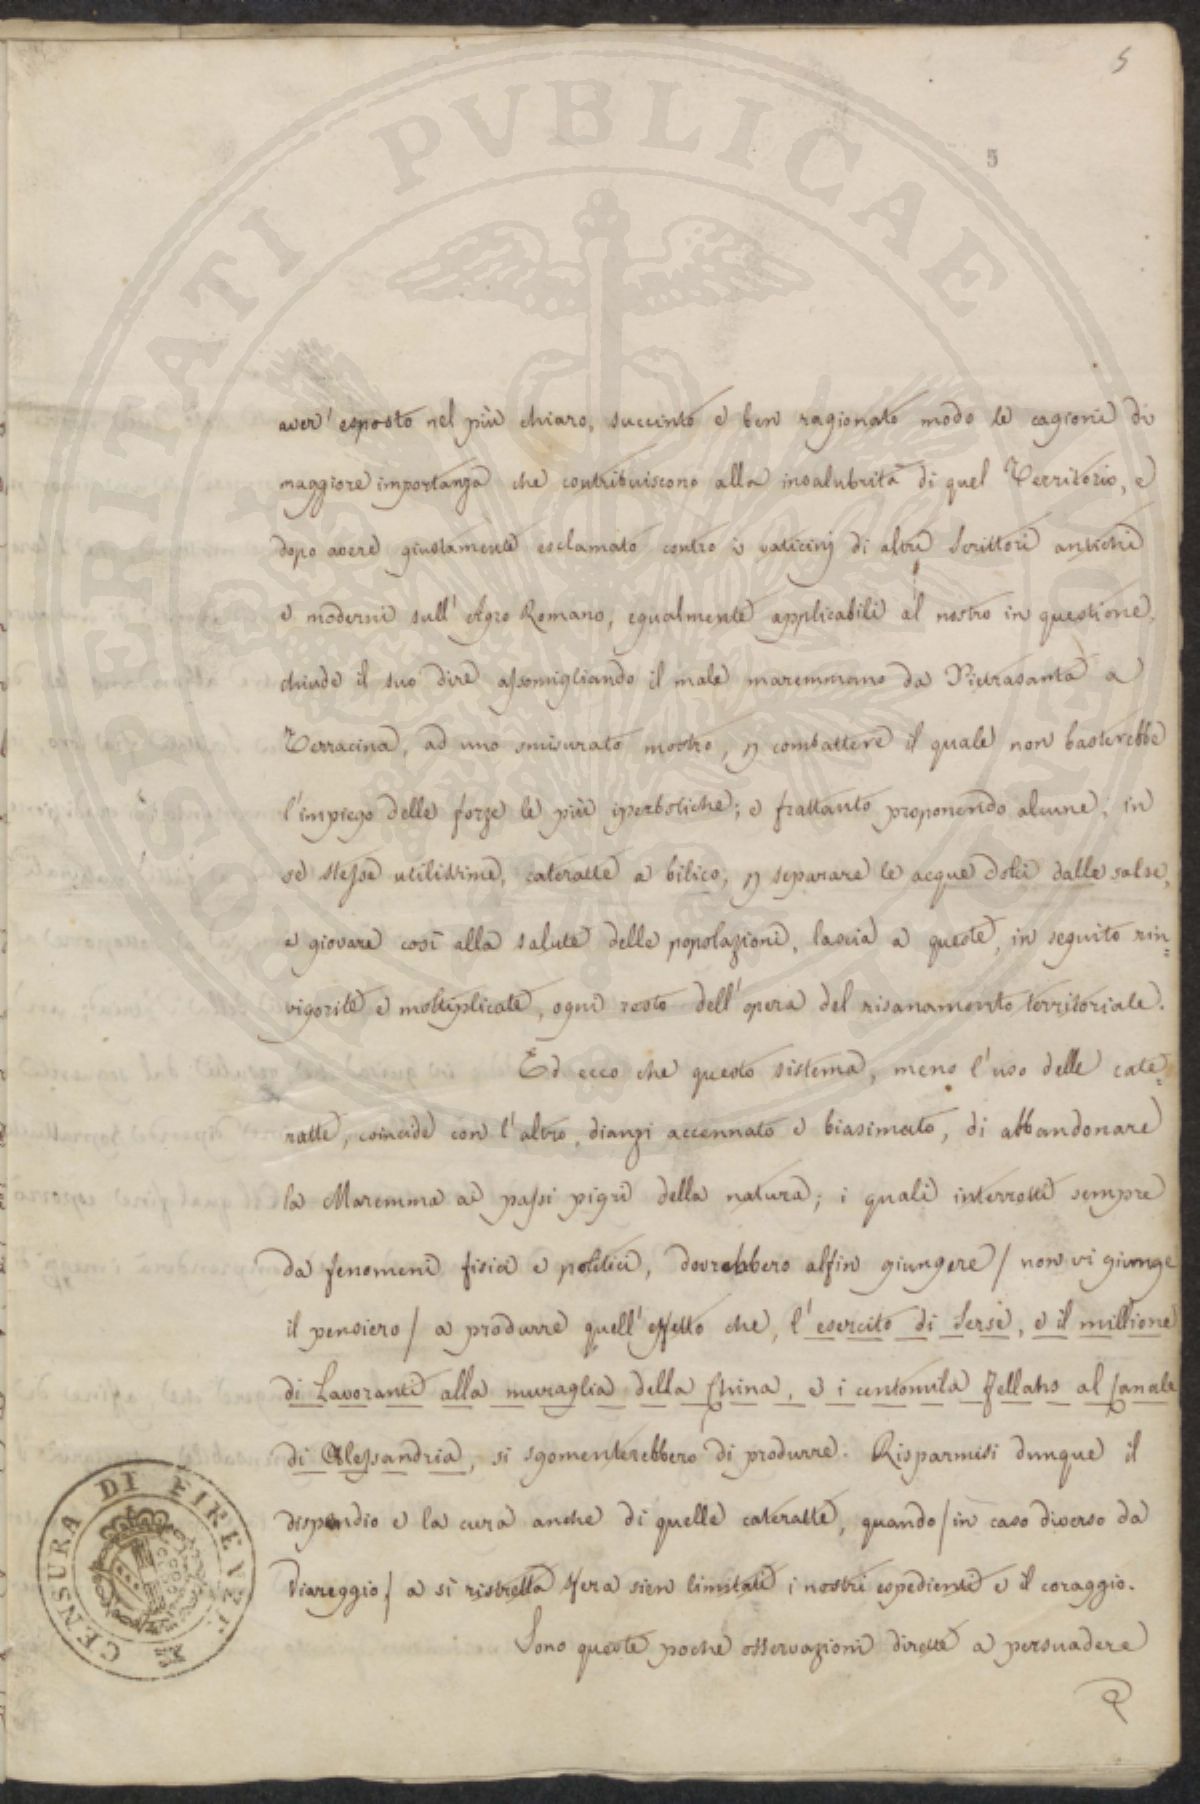 5
5
aver' esposto nel più chiaro, succinto e ben ragionato modo le cagioni di
maggiore importanza che contribuiscono alla insalubrità di quel Territorio, e
dopo avere giustamente esclamato contro i vaticinj di altri Scrittori antichi
e moderni sull' Agro Romano, egualmente applicabili al nostro in questione,
chiude il suo dire assomigliando il male maremmano da Pietrasanta a
Terracina, ad uno smisurato mostro, p combattere il quale non basterebbe
l'impiego delle forze le più iperboliche; e frattanto proponendo alcune, in
se stesse utilissime, cateratte a bilico, p separare le acque dolci dalle salse,
e giovare così alla salute delle popolazioni, lascia a queste, in seguito rin=
vigorite e moltiplicate, ogni resto dell'opera del risanamento territoriale.
Ed ecco che questo sistema, meno l'uso delle cate=
ratte, coincide con l'altro, dianzi accennato e biasimato, di abbandonare
la Maremma ai passi pigri della natura; i quali interrotti sempre
da fenomeni fisici e politici, dovrebbero alfin giungere / non vi giunge
il pensiero / a produrre quell'effetto che, l'esercito di Serse, e il millione
di Lavoranti alla muraglia della China, e i centomila Fellahs al Canale
di Alessandria, si sgomenterebbero di produrre. Risparmisi dunque il
dispendio e la cura anche di quelle cateratte, quando / in caso diverso da
Viareggio / a sì ristretta sfera sien limitati i nostri espedienti e il coraggio.
Sono queste poche osservazioni dirette a persuadere
CENSURA DI FIRENZE
PROSPERITATI PVBLICAE